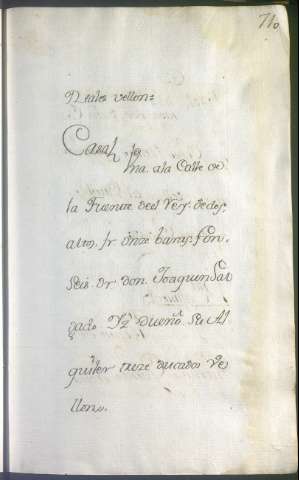 710
Reales vellon=
Casa Yna. ala Calle de
la Fuente deel Rey. de dos
altos, fr. onze baras, fon.
Seis. de don Joaquin Sal
gado Yz. Dueno. su Al
quiler treze ducados Ve
llon.